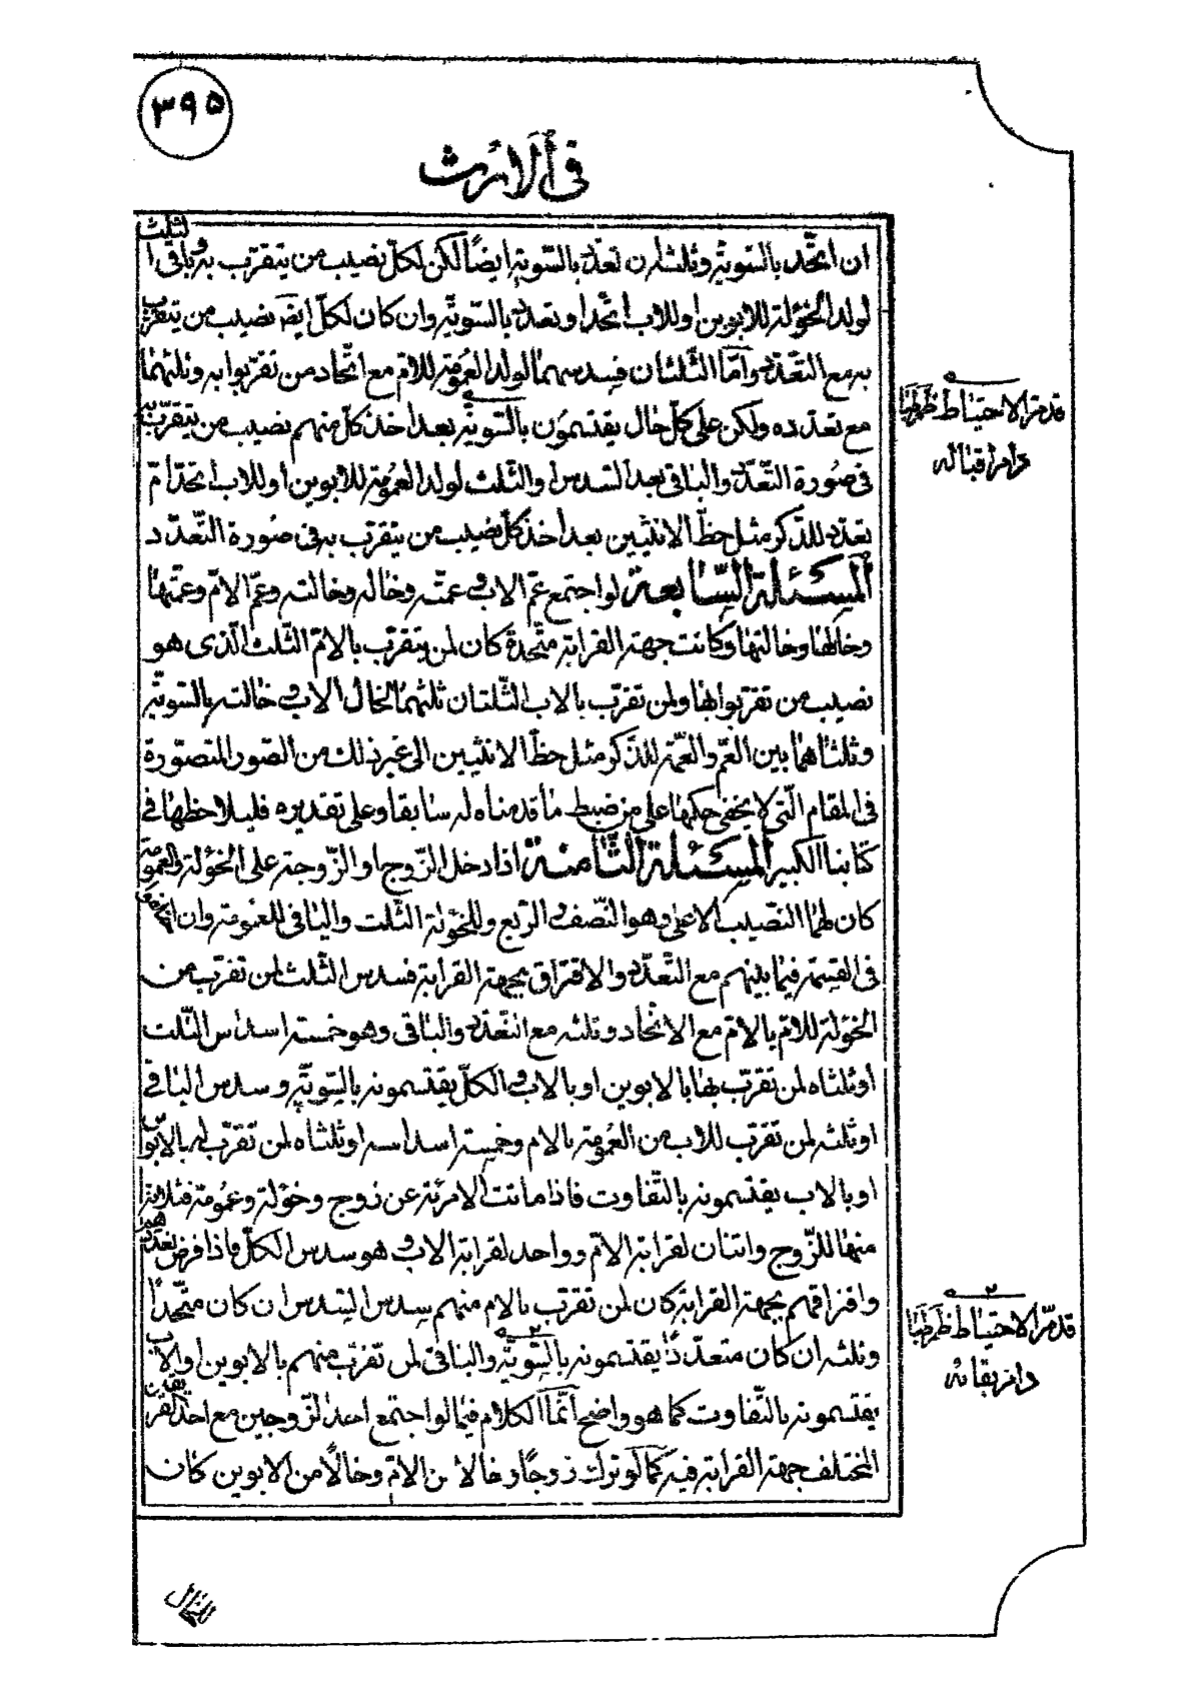 ٣٩٥
فى ألارث
ان اتّحد بالسّويّة وثلثه ان تعدّد بالسّويّة ايضًا لكن لكلّ نصيب من يتقرّب به وباقى الثلث
لولد الخؤلة للابوين او للاب اتّحد او تعدّد بالسّويّة وان كان لكلّ ايضه نصيب من يتقرب
به مع التّعدّد وامّا الثّلثان فسدسهما لولد العمومة للامّ مع اتّحاد من تقرّبوا به وثلثهما
مع تعدّده ولكن على كلّ حال يقتسمون بالسّويّة بعد اخذ كلّ منهم نصيب من يتقرّب به
فى صورة التّعدّد والباقى بعد السّدس او الثّلث لولد العمومة للابوين او للاب اتّحد ام
تعدّد للذّكر مثل حظّ الانثيين بعد اخذ كلّ نصيب من يتقرب به فى صورة التّعدّد
المسئلة السّابعة لو اجتمع عمّ الاب و عمّته وخاله وخالته وعمّ الامّ وعمّتها
وخالها وخالتها وكانت جهة القرابة متّحدة كان لمن يتقرّب بالامّ الثّلث الّذى هو
نصيب من تقرّبوا بها ولمن تقرّب بالاب الثّلثان ثلثهما لخال الاب و خالته بالسّويّة
وثلثاهما بين العمّ والعمّة للذّكر مثل حظّ الانثيين الى غير ذلك من الصّور المتصوّرة
فى المقام الّتى لا يخفى حكمها على من ضبط ما قدمناه له سابقا وعلى تقديره فليلاحظها فى
كتابنا الكبير المسئلة الثّامنة اذا دخل الزّوج او الزّوجة على الخؤلة والعمومة
كان لهما النّصيب الاعلى وهو النّصف و الرّبع وللخؤلة الثّلث والباقى للعمومة وان
فى القسمة فيما بينهم مع التّعدّد والافتراق بجهة القرابة فسدس الثّلث لمن تقرّب من
الخؤلة للامّ بالامّ مع الاتّحاد وثلثه مع التّعدّد والباقى وهو خمسة اسداس الثّلث
او ثلثاه لمن تقرّب بها بالابوين او بالاب و الكلّ يقتسمونه بالسّويّة وسدس الباقى
او ثلثه لمن تقرّب للاب من العمومة بالام وخمسة اسداسه او ثلثاه لمن تقرّب له بالابوين
او بالاب يقتسمونه بالتّفاوت فاذا ماتت الامرئة عن زوج وخؤلة وعمومة فثلاثة
منها للزّوج واثنان لقرابة الامّ وواحد لقرابة الاب و هو سدس الكلّ فاذا فرض تعدّدهم
وافتراقهم بجهة القرابة كان لمن تقرّب بالام منهم سدس السّدس ان كان متّحدًا
وثلثه ان كان متعدّدًا يقتسمونه بالسّويّة والباقى لمن تقرّب منهم بالابوين او الاب
يقتسمونه بالتّفاوت كما هو واضح انّما الكلام فيما لو اجتمع احد الزّوجين مع احد الفريقين
المختلف جهة القرابة فيه كما لو ترك زوجًا وخالا من الامّ وخالًا من الابوين كان
قدمرّ الاحتياط
دام اقباله
٢
قدمرّ الاحتياط
دام بقائه
للخال